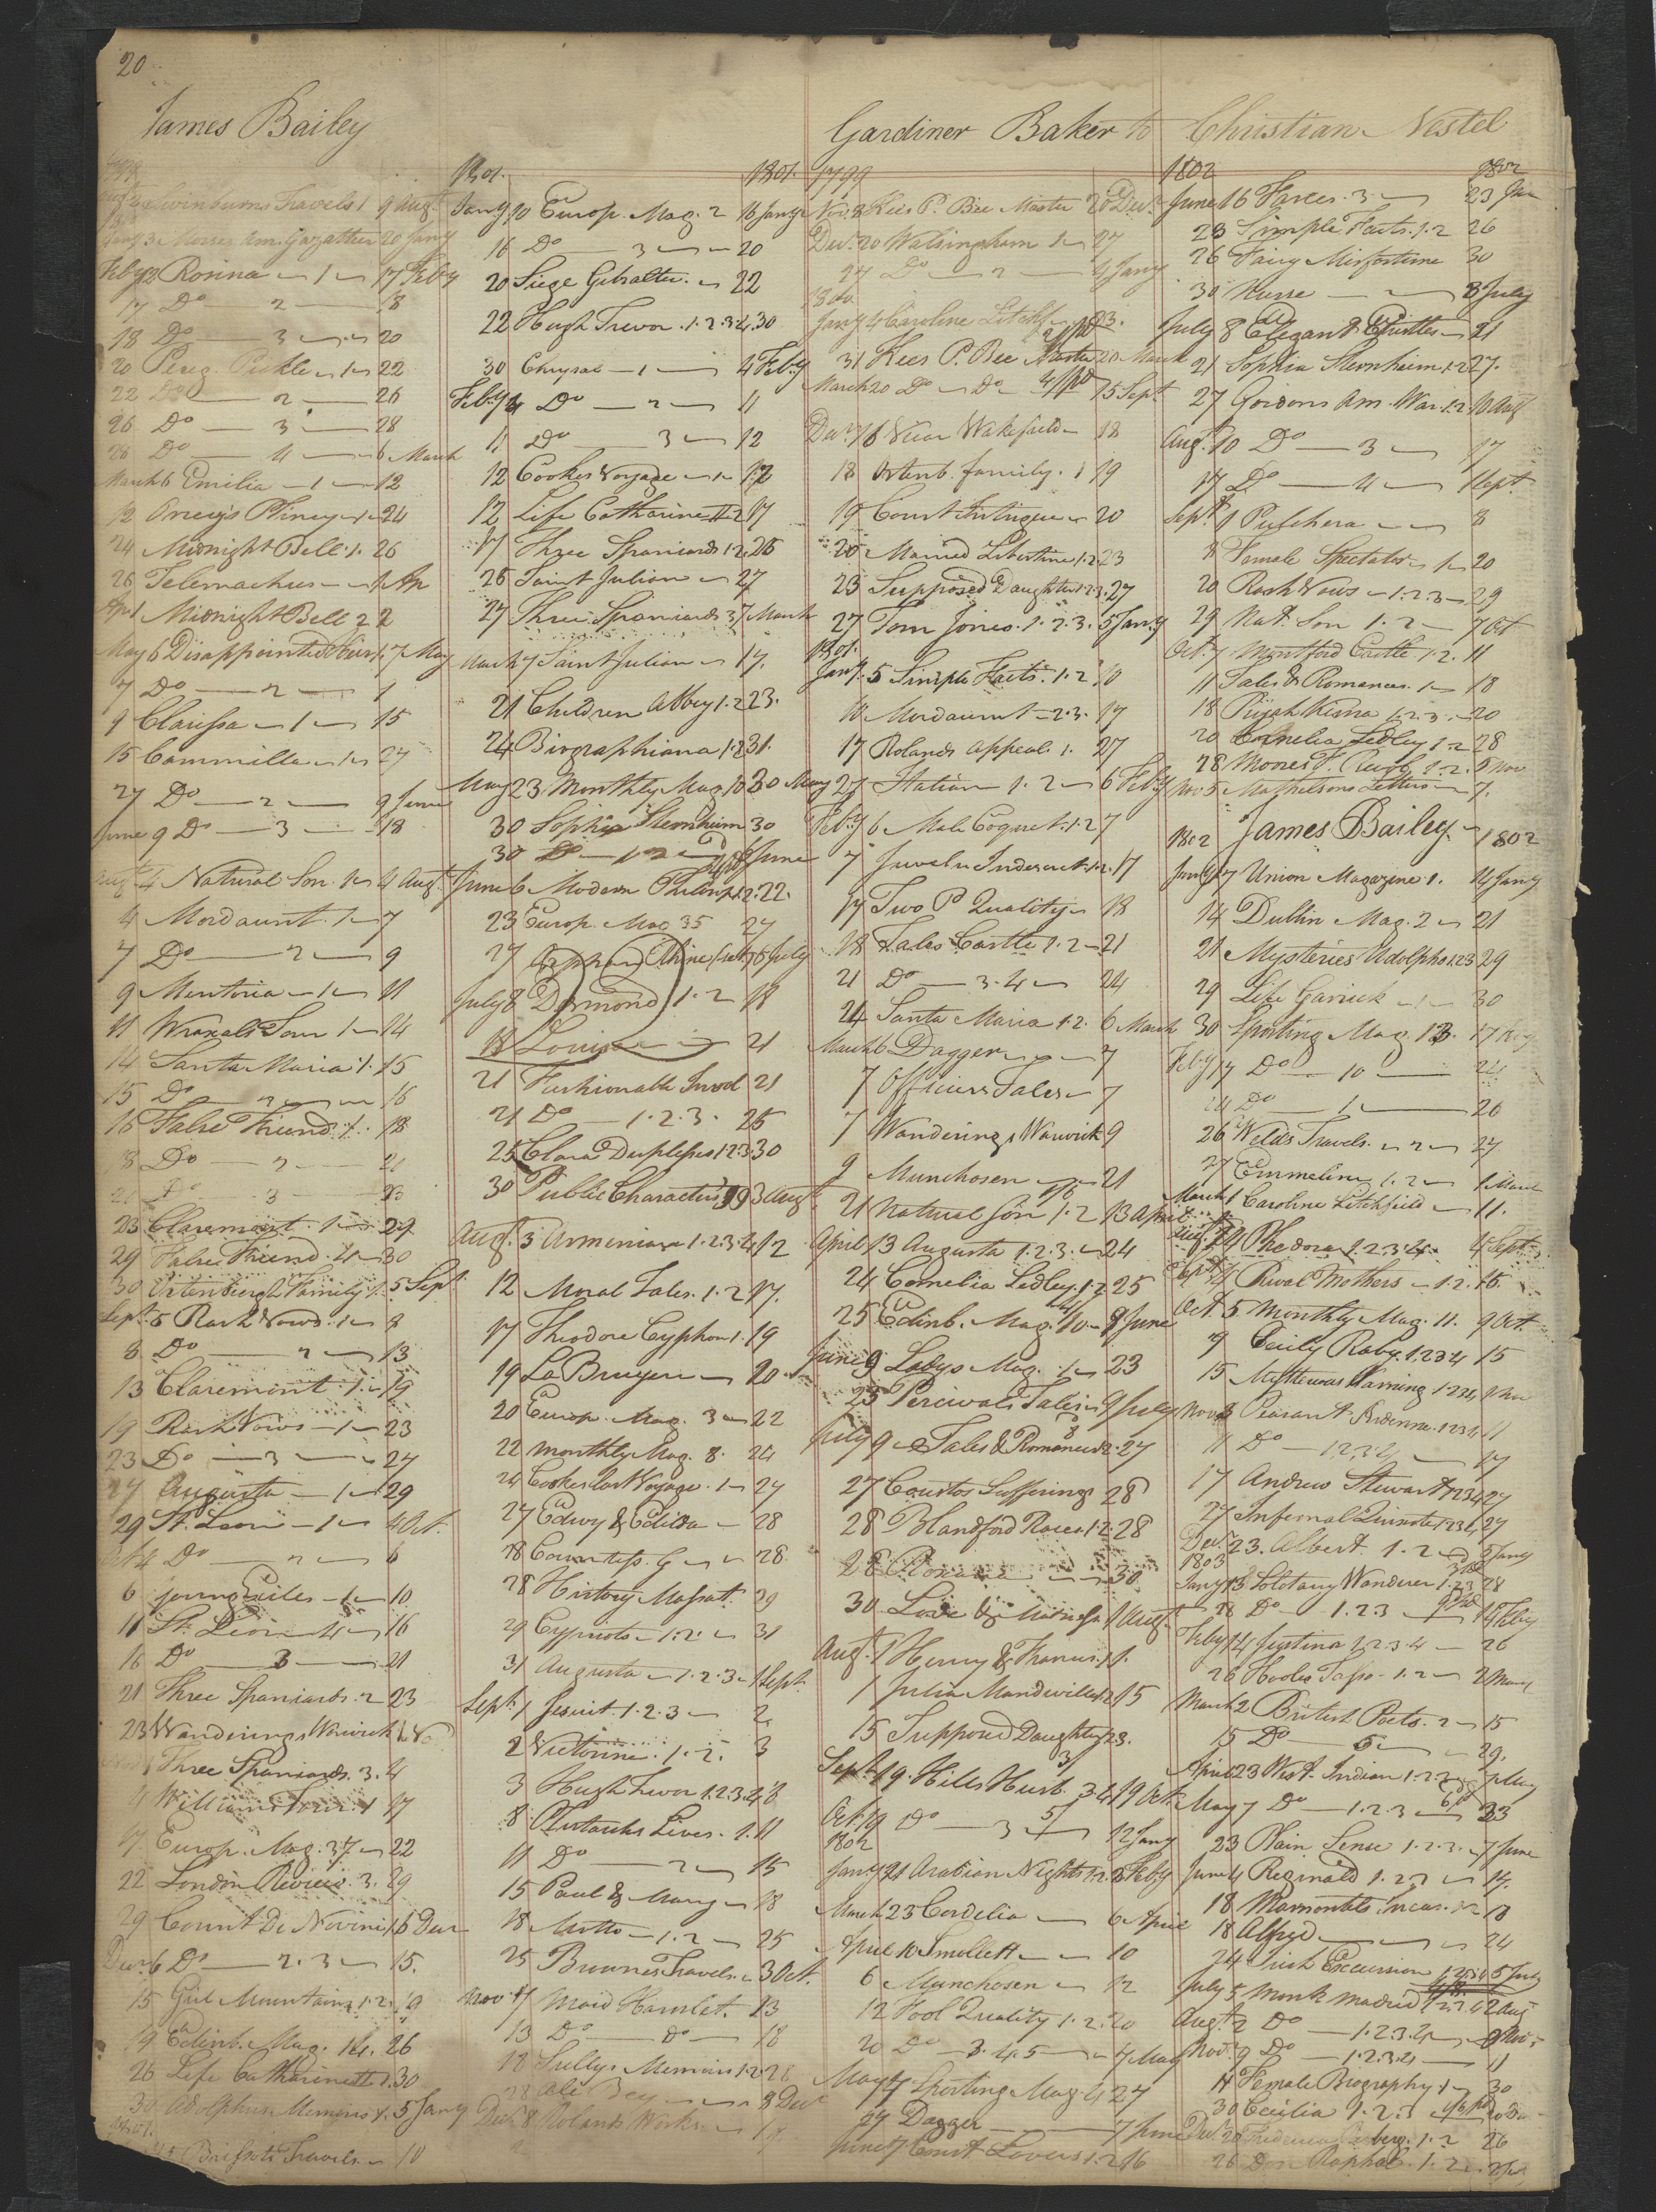 20
James Bailey
Swinburns Travels 1 9 Augt
3 Morses Am. Gazatteer 20 Jany
Feby 12 Rosina — 1 — 17 Feby
17 Do — 2 — 18
18 Do — 3 — 20
20 Pereg. Pickle — 1 — 22
22 Do — 2 — 26
26 Do — 3 — 28
28 Do — 4 — 6 March
March 6 Emilia — 1 — 12
12 Orrery's Pliney — 1 — 24
24 Midnight Bell 1. 26
26 Telemachus — 1 Ap
Apl 1 Midnight Bell 2 2
May 6 Disappointed Heir 1. 7 May
7 Do — 2 — 9
9 Clarissa — 1 — 15
15 Cammilla — 1 — 27
27 Do — 2 — 9 June
June 9 Do — 3 — 18
Augt 4 Natural Son 1 — 4 Augt
4 Mordaunt 1 — 7
7 Do — 2 — 9
9 Mentoria — 1 — 11
11 Wraxals Tour 1 — 14
14 Santa Maria 1. 15
15 Do — 2 — 16
16 False Friend 1. 18
18 Do — 2 — 21
21 Do — 3 — 23
23 Claremont 1 — 29
29 False Friend 4 — 30
30 Ortenburgh Family 1. 5 Sept
Sept. 5 Rash Vows 1 — 8
8 Do — 2 — 13
13 Claremont 1. — 19
19 Rash Vows — 1 — 23
23 Do — 3 — 27
27 Augusta — 1 — 29
29 St. Leon — 1 — 4 Oct.
Oct 4 Do — 2 — 6
6 Young Exiles — 1 — 10
11 St. Leon 4 — 16
16 Do — 3 — 21
21 Three Spaniards 2 23
23 Wanderings Warwick 1 Nov
Nov 1 Three Spaniards. 3. 4
4 Williams Tour. 1 17
17 Europ. Mag. 37 — 22
22 London Review. 3. 29
29 Count Di Novini 1 6 Decr
Decr 6 Do — 2. 3 — 15.
15 Girl Mountains 1. 2. 19
19 Edinb. Mag. 14. 26
26 Life Catharine II 1. 30
30 Adolphus Memoirs 1. 5 Jany
1801.
5 Brissots Travels — 10
1801. 1801.
Jany 10 Europ. Mag. 2 16 Jany
16 Do — 3 — 20
20 Siege Gibralter. — 22
22 Hugh Trevor. 1. 2. 3. 4. 30
30 Chrysal — 1 — 4 Feby
Feby 4 Do — 2 — 11
11 Do — 3 — 12
12 Cookes Voyage — 1 — 12
12 Life Catharine II 2 17
17 Three Spaniards 1. 2. 26
26 Saint Julian — 27
27 Three Spaniards 3 7 March
March 7 Saint Julian — 17.
21 Children Abbey 1. 2 23.
24 Biographiana 1. 2 31.
May 23 Monthly Mag. 10 30 May
30 Sophia Sternheim 30
30 Do — 1. 2 — 6 June
June 6 Modern Philosop. 1. 2. 22.
23 Europ. Mag 35 27
27 Orphan Rhine 6 July
July 8 Desmond 1. 2 18
18 Louisa — 21
21 Fashionable Invol 21
21 Do — 1. 2. 3. 25
25 Clara Duplessis 1. 2. 3. 30
30 Public Characters 99 3 Augt
Augt. 3 Armenian 1. 2. 3. 4 12
12 Moral Tales. 1. 2 17.
17 Theodore Cyphon 1. 19
19 La Bruyere — 20
20 Europ. Mag. 3 — 22
22 Monthly Mag. 8. 24
24 Cookes last Voyage. 1 — 27
27 Edwy & Edilda — 28
28 Countess. G — 28.
28 History Massat. 29
29 Cypriots — 1. 2. — 31
31 Augusta — 1. 2. 3 — 1 Sept.
Sept. 1 Jesuit. 1. 2. 3 — 2
2 Victorine. 1. 2. 3
3 Hugh Trevor 1. 2. 3. 4. 8
8 Plutarchs Lives. 1. 11
11 Do — 2 — 15
15 Paul & Mary — 18
18 Motto — 1. 2 — 25
25 Brownes Travels. — 3 Oct.
Novr 11 Maid Hamlet. 13
13 Do — Do — 18
18 Sullys Memoirs 1. 2. 28
28 Ali Bey — 8 Decr
Decr 8 Rolands Works
Gardiner Baker to Christian Nestel
1799
Nov. 8 Kees P. Bee Master 20 Decr
Decr 20 Walsingham 1 — 27
27 Do — 2 — 4 Jany
1800
Jany 4 Caroline Litchf 23.
31 Kees P. Bee Master 20 March
March 20 Do — Do — 15 Sept
Decr 16 Vicar Wakefield — 18
18 Ortenb. family. 1 19
19 Court Intrigue — 20
20 Married Libertine 1. 2. 23
23 Supposed Daughter 1. 2. 3. 27
27 Tom Jones. 1. 2. 3. 5 Jany
1801.
Jany. 5 Simple Facts. 1. 2 10
10 Mordaunt — 2. 3. 17
17 Rolands Appeal 1. 27
27 Statira 1. 2 — 6 Feby
Feby 6 Male Coquet. 1. 2 7
7 Juvenile Indiscret. 1. 2. 17
17 Two P Quality — 18
18 Tales Castle 1. 2 — 21
21 Do — 3. 4 — 24
24 Santa Maria 1. 2. 6 March
March 6 Dagger — 7
7 Officers Tales — 7
7 Wanderings Warwick 9
9 Munchosen — 21
21 Natural Son 1. 2 13 April
April 13 Augusta 1. 2. 3. — 24
24 Cornelia Sedley. 1. 2 25
25 Edinb. Mag. 10 — 9 June
June 9 Ladys Mag. 1 — 23
23 Percivals Tales — 9 July
July 9 Tales & Romances 2. 27
27 Coustos Sufferings 28
28 Blandford Races 1. 2. 28
28 Roxana — 30
30 Love & Madness 1 Augt
Augt. 1 Henry & Frances. 1 1.
1 Julia Mandeville 1. 2 15
15 Supposed Daughter 23.
Sept. 19. Hills Husb. 3. 4. 19 Oct.
Oct 19 Do — 3 — 12 Jany
1802
Jany 21 Arabian Nights 1. 2. 8 Feby
March 23 Cordelia — 6 April
April 10 Smollett — 10
6 Munchosen — 12
12 Fool Quality 1. 2. 20
20 Do — 3. 4. 5 — 4 May
May 4 Sporting Mag. 4 27
27 Dagger — 7 June
June 7 Court Lovers 1. 2 16
1802 1802
June 16 Farces. 3 — 23 Jun
23 Simple Facts. 1. 2 26
26 Fairy Misfortune 30
30 Nurse — 8 July
July 8 Elegant Epistles — 21
21 Sophia Sternheim 1. 2 27.
27 Gordons Am. War. 1. 2 10 Augt
Augt. 10 Do — 3 — 17
17 Do — 4 — 1 Sept.
Sept. 1 Pulchera — 8
8 Female Spectator — 1 — 20
20 Rash Vows — 1. 2. 3 — 29
29 Nat. Son 1. 2 — 7 Oct
Oct. 7 Montford Castle 1. 2. 11
11 Tales & Romances. 1 — 18
18 1. 2. 3. — 20
20 Cornelia Sedley 1. 2 28
28 Moores 1. 2. 5 Nov
Nov 5 Letters — 7.
1802 James Bailey. — 1802
Jany 7 Union Magazine 1. 14 Jany
14 Dublin Mag. 2 — 21
21 Mysteries Udolpho 1. 2. 3 29
29 Life Garrick — 1 — 30
30 Sporting Mag. 13. 17 Feby
Feby 17 Do — 10 — 24
24 Do — 1 — 26
26 Welds Travels. — 2 — 27
27 Emmeline 1. 2 — 1 March
March 1 Caroline Litchfield — 11.
Augt 1. 2. 3. 4. 4 Sept
Sept 4 Rival Mothers — 1. 2. 15
Oct. 5 Monthly Mag. 11. 9 Oct.
9 Cecily Raby. 1. 2. 3. 4 15
15 Mysterious Warning 1. 2. 3. 4 1 Nov
Nov 3 Peasant Ardenne. 1. 2. 3. 4 11
11 Do — 1. 2. 3. 4 — 17
17 Andrew Stewart 1. 2. 3. 4 27
27 Infernal Quixote 1. 2. 3. 4 27
Decr. 23. Albert 1. 2 — 3 Jany
1803
Jany 13 Solotary Wanderer 1. 2. 3 28
28 Do — 1. 2. 3 — 14 Feby
Feby 14 Justina 1. 2. 3. 4 — 26
26 Hooles Tasso. 1. 2 — 2 March
March 2 British Poets. 2 — 15
15 Do — 5 — 29.
April 23 West Indian 1. 2. 3 7 May
May 7 Do — 1. 2. 3 — 23
23 Plain Sense 1. 2. 3. — 7 June
June 4 Reginald 1. 2. 3 — 14.
18 Marmontels Incas. 1. 2 18
18 Alfred — 24
24 Irish Excursion 1. 2. 3. 4 5 July
July 5 Monk Madrid 1. 2. 3. 4 2 Aug
Augt. 2 Do — 1. 2. 3. 4 — 9 Nov.
Nov. 9 Do — 1. 2. 3. 4 — 11
11 Female Biography 1 — 30
30 Cecilia 1. 2. 3 20 Decr
Decr. 20 1. 2 26
26 Don Raphael. 1. 2